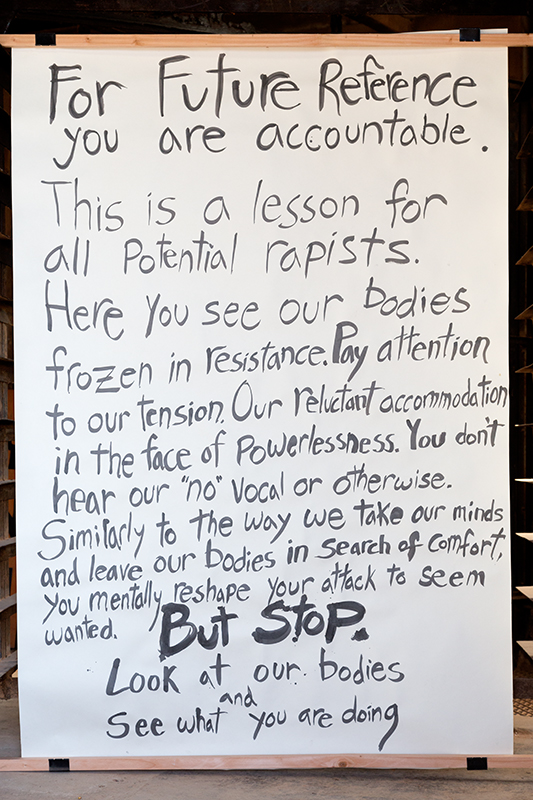 For Future Reference
you are accountable.
This is a lesson for
all Potential rapists.
Here you see our bodies
frozen in resistance. Pay attention
to our tension. Our reluctant accommodation
in the face of Powerlessness. You don't
hear our "no" vocal or otherwise.
Similarly to the way we take our minds
and leave our bodies in search of comfort,
you mentally reshape your attack to seem
wanted. But Stop.
Look at our bodies
and
See what you are doing